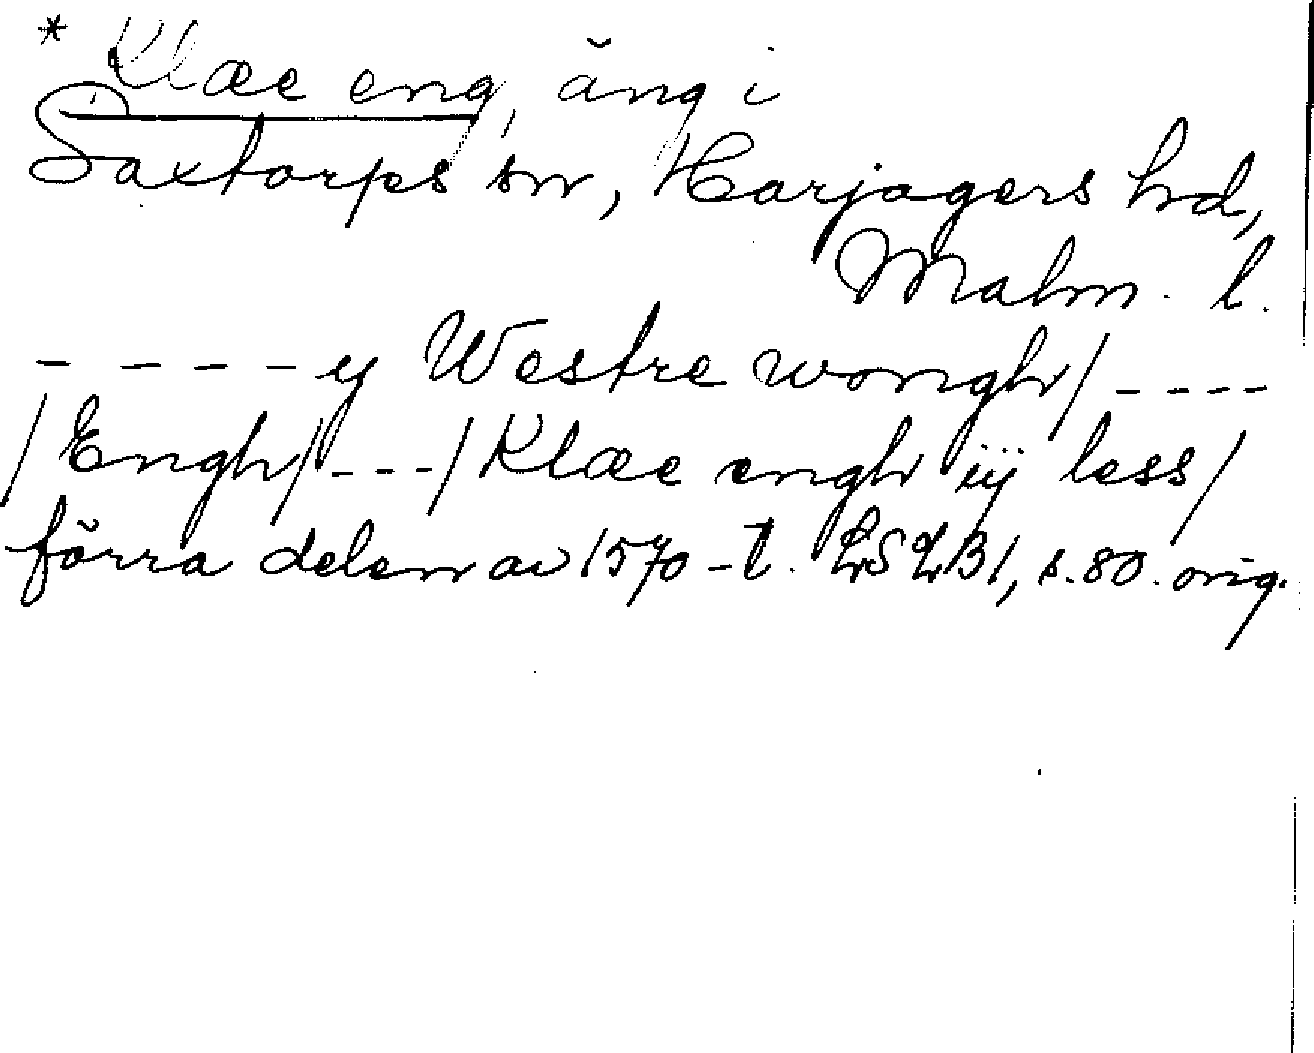 * Klæe eng, äng i
Saxtorps sn, Harjagers hd,
Malm. l.
- - - - - y Westre wongh/ - - - -
/Engh/ - - - / Klæe engh iij less/
förra delen av 1570-t. LSLB1, s. 80. orig.